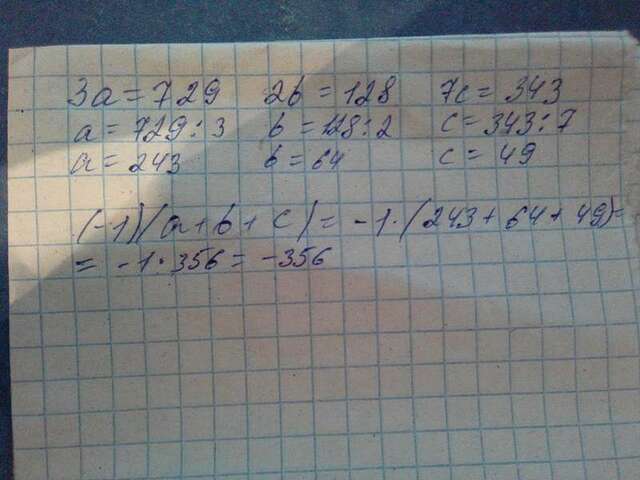 3a = 729 2b = 128 7c = 343
a = 729 : 3 b = 128 : 2 c = 343 : 7
a = 243 b = 64 c = 49
(-1)(a + b + c) = -1 · (243 + 64 + 49) =
= -1 · 356 = -356